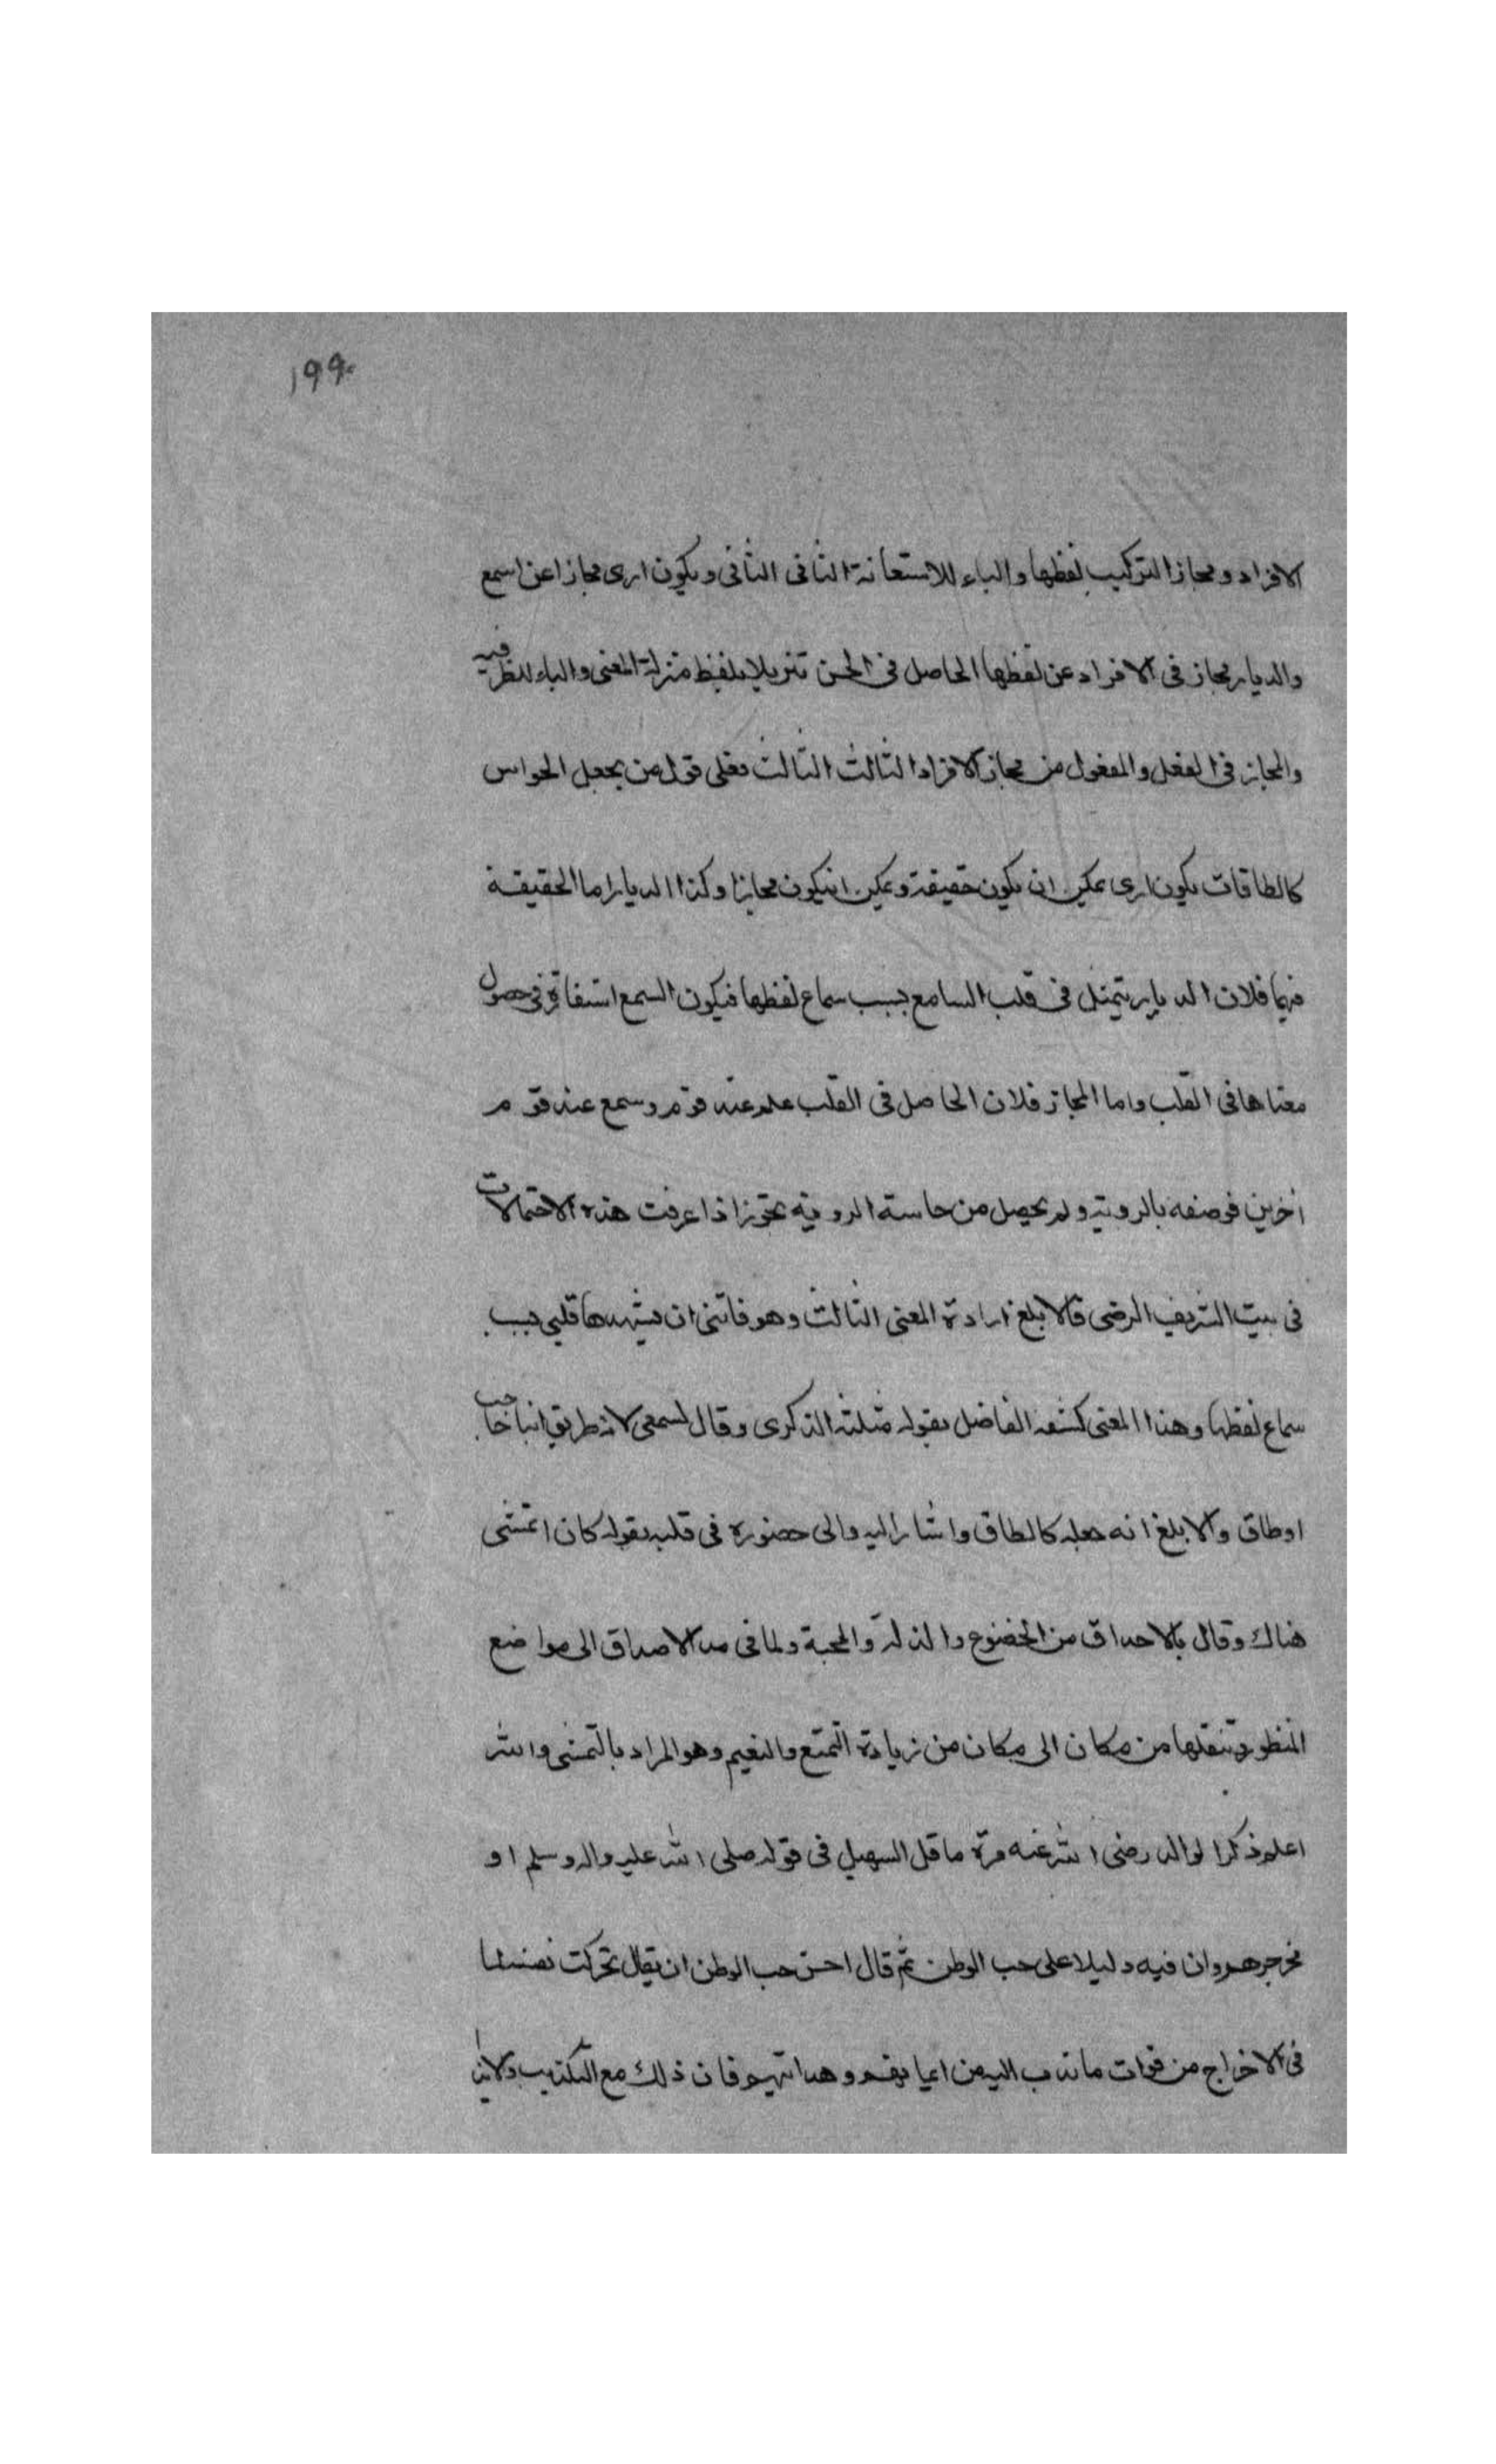 ١٩٩
الافراد ومجاز التركيب بلفظها والباء للاستعانة الثانى الثانى ويكون ارى مجازا عن اسمع
والديار مجاز فى الافراد عن لفظها الحاصل فى الحسن تنزيلا بلفظ منزلة المعنى والباء للظرفيه
والمجاز فى الفعل والمفعول من مجاز الافراد الثالث الثالث فعلى قول من يجعل الحواس
كالطاقات يكون ارى يمكن ان يكون حقيقة ويمكن انيكون مجازا وكذا الديار اما الحقيقة
فيها فلان الديار يتمثل فى قلب السامع بسبب سماع لفظها فيكون السمع استفاقة فى حصول
معناها فى القلب واما المجاز فلان الحاصل فى القلب علم عند قوم وسمع عند قوم
اخرين فوصفه بالروية ولم يحصل من حاسة الروية تجوز اذا عرفت هذه الاحتمالات
فى بيت الشريف الرضى فالابلغ ارادة المعنى الثالث وهو فاتنى ان يشهدها قلبى بسبب
سماع لفظها وهذا المعنى كشفه الفاضل بقوله مثلته الذكرى وقال لسمعى لانه طريق
اوطاق والابلغ انه جعله كالطاق واشار اليه والى حضوره فى قلبه بقوله كان اتمشى
هناك وقال بالاحداق من الخضوع والذلة والمحبة ولما فى مد الاصداق الى مواضع
المنظور وتنقلها من مكان الى مكان من زيادة التمتع والنعيم وهو المراد بالتمشى والله
اعلم ذكرا لوالد رضى الله عنه مرة ما قل السهيل فى قوله صلى الله عليه واله وسلم او
مخرجى هم وان فيه دليلا على حب الوطن ثم قال احسن حب الوطن ان يقال تحركت نفسه لما
فى الاخراج من فوات ما ندب اليه من ايمانهم وهدايتهم فان ذلك مع التكذيب والايذا